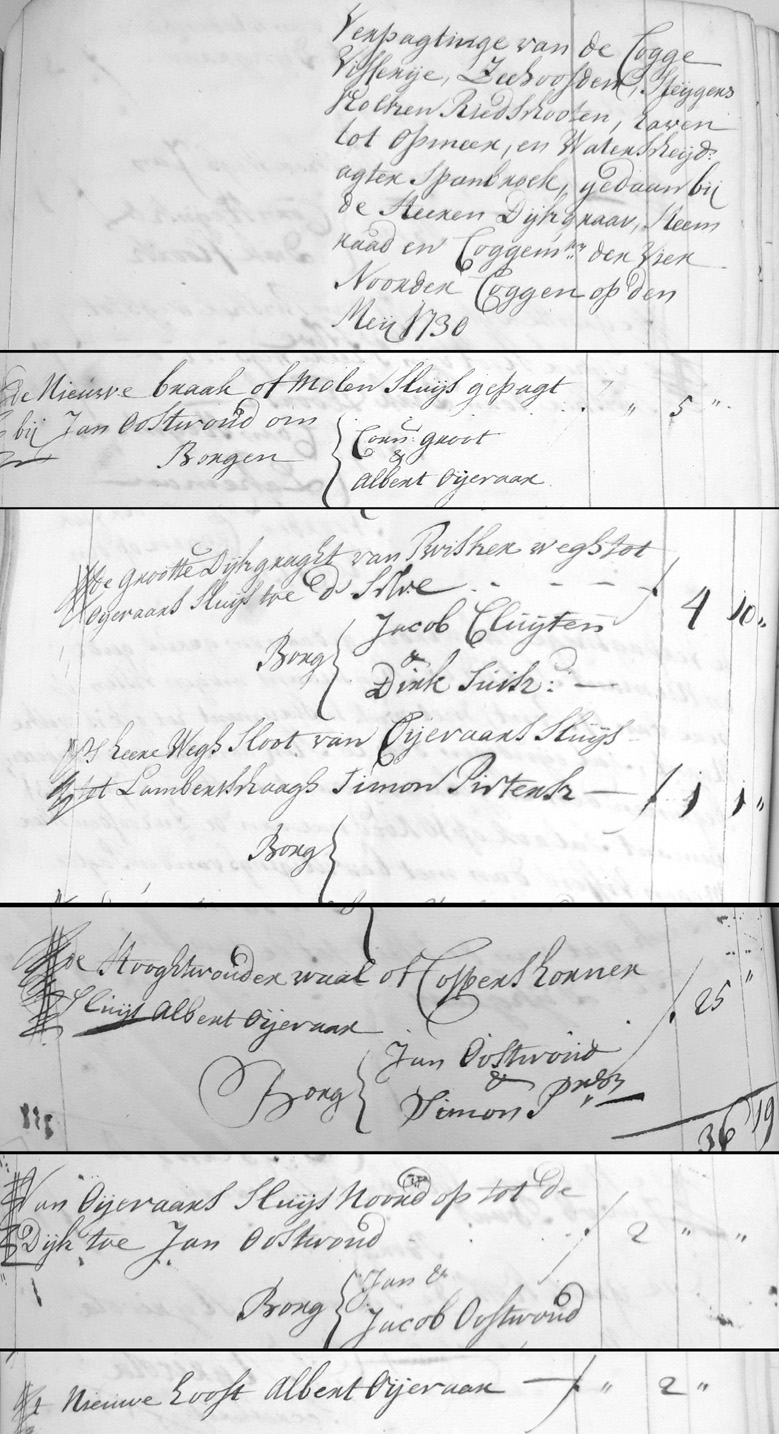 Verpagtinge van de Cogge
Visserije, Zeehoofden, Steijgers
Kolken Riedschooten, haven
tot Opmeer, en Waterscheijd:
agter Spanbroek, gedaan bij
de Heeren Dijkgraav, Heem
raad en Coggem:rs der Vier
Noorder Coggen op den
Meij 1730
de Nieuwe braak of Molen Sluijs gepagt
bij Jan Oostwoud om " 5 "
Borgen Corn: Groot
&
Albert Oijevaar
de Groote Dijkgraght van weghs tot
Oijevaars Sluijs toe 4 10 "
Borg Jacob Cluijten
&
Dirk
's heere Wegh Sloot van Oijevaars Sluijs
tot Lambertschaagh Simon 1 1 "
Borg
de Hooghtwouder waal of Cospers korner
Sluijs Albert Oijevaar 25 "
Jan Oostwoud
Borg &
Simon
36 19
Van Oijevaars Sluijs Noord op tot de
Dijk toe Jan Oostwoud 2 " "
Borg Jan &
Jacob Oostwoud
't Nieuwe Loost Albert Oijevaar " 2 "